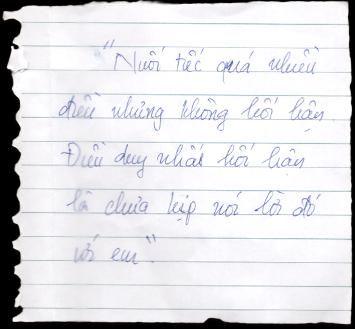 "Nuối tiếc quá nhiều
điều nhưng không hối hận.
Điều duy nhất hối hận
là chưa kịp nói lời đó
với em."